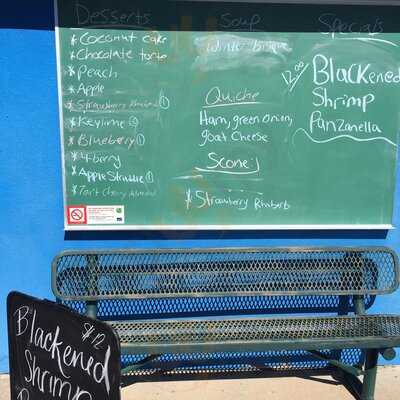 Desserts
* Coconut cake
* Chocolate torte
* Peach
* Apple
* Strawberry Rhubarb ①
* Keylime ④
* Blueberry ①
* 4-berry
* Apple Strudle ①
* Tart Cherry Almond
Soup
Winter bisque
Quiche
Ham, green onion,
goat Cheese
Scones
* Strawberry Rhubarb
Specials
12.00
BLackened
Shrimp
Panzanella
$12
Blackened
Shrimp